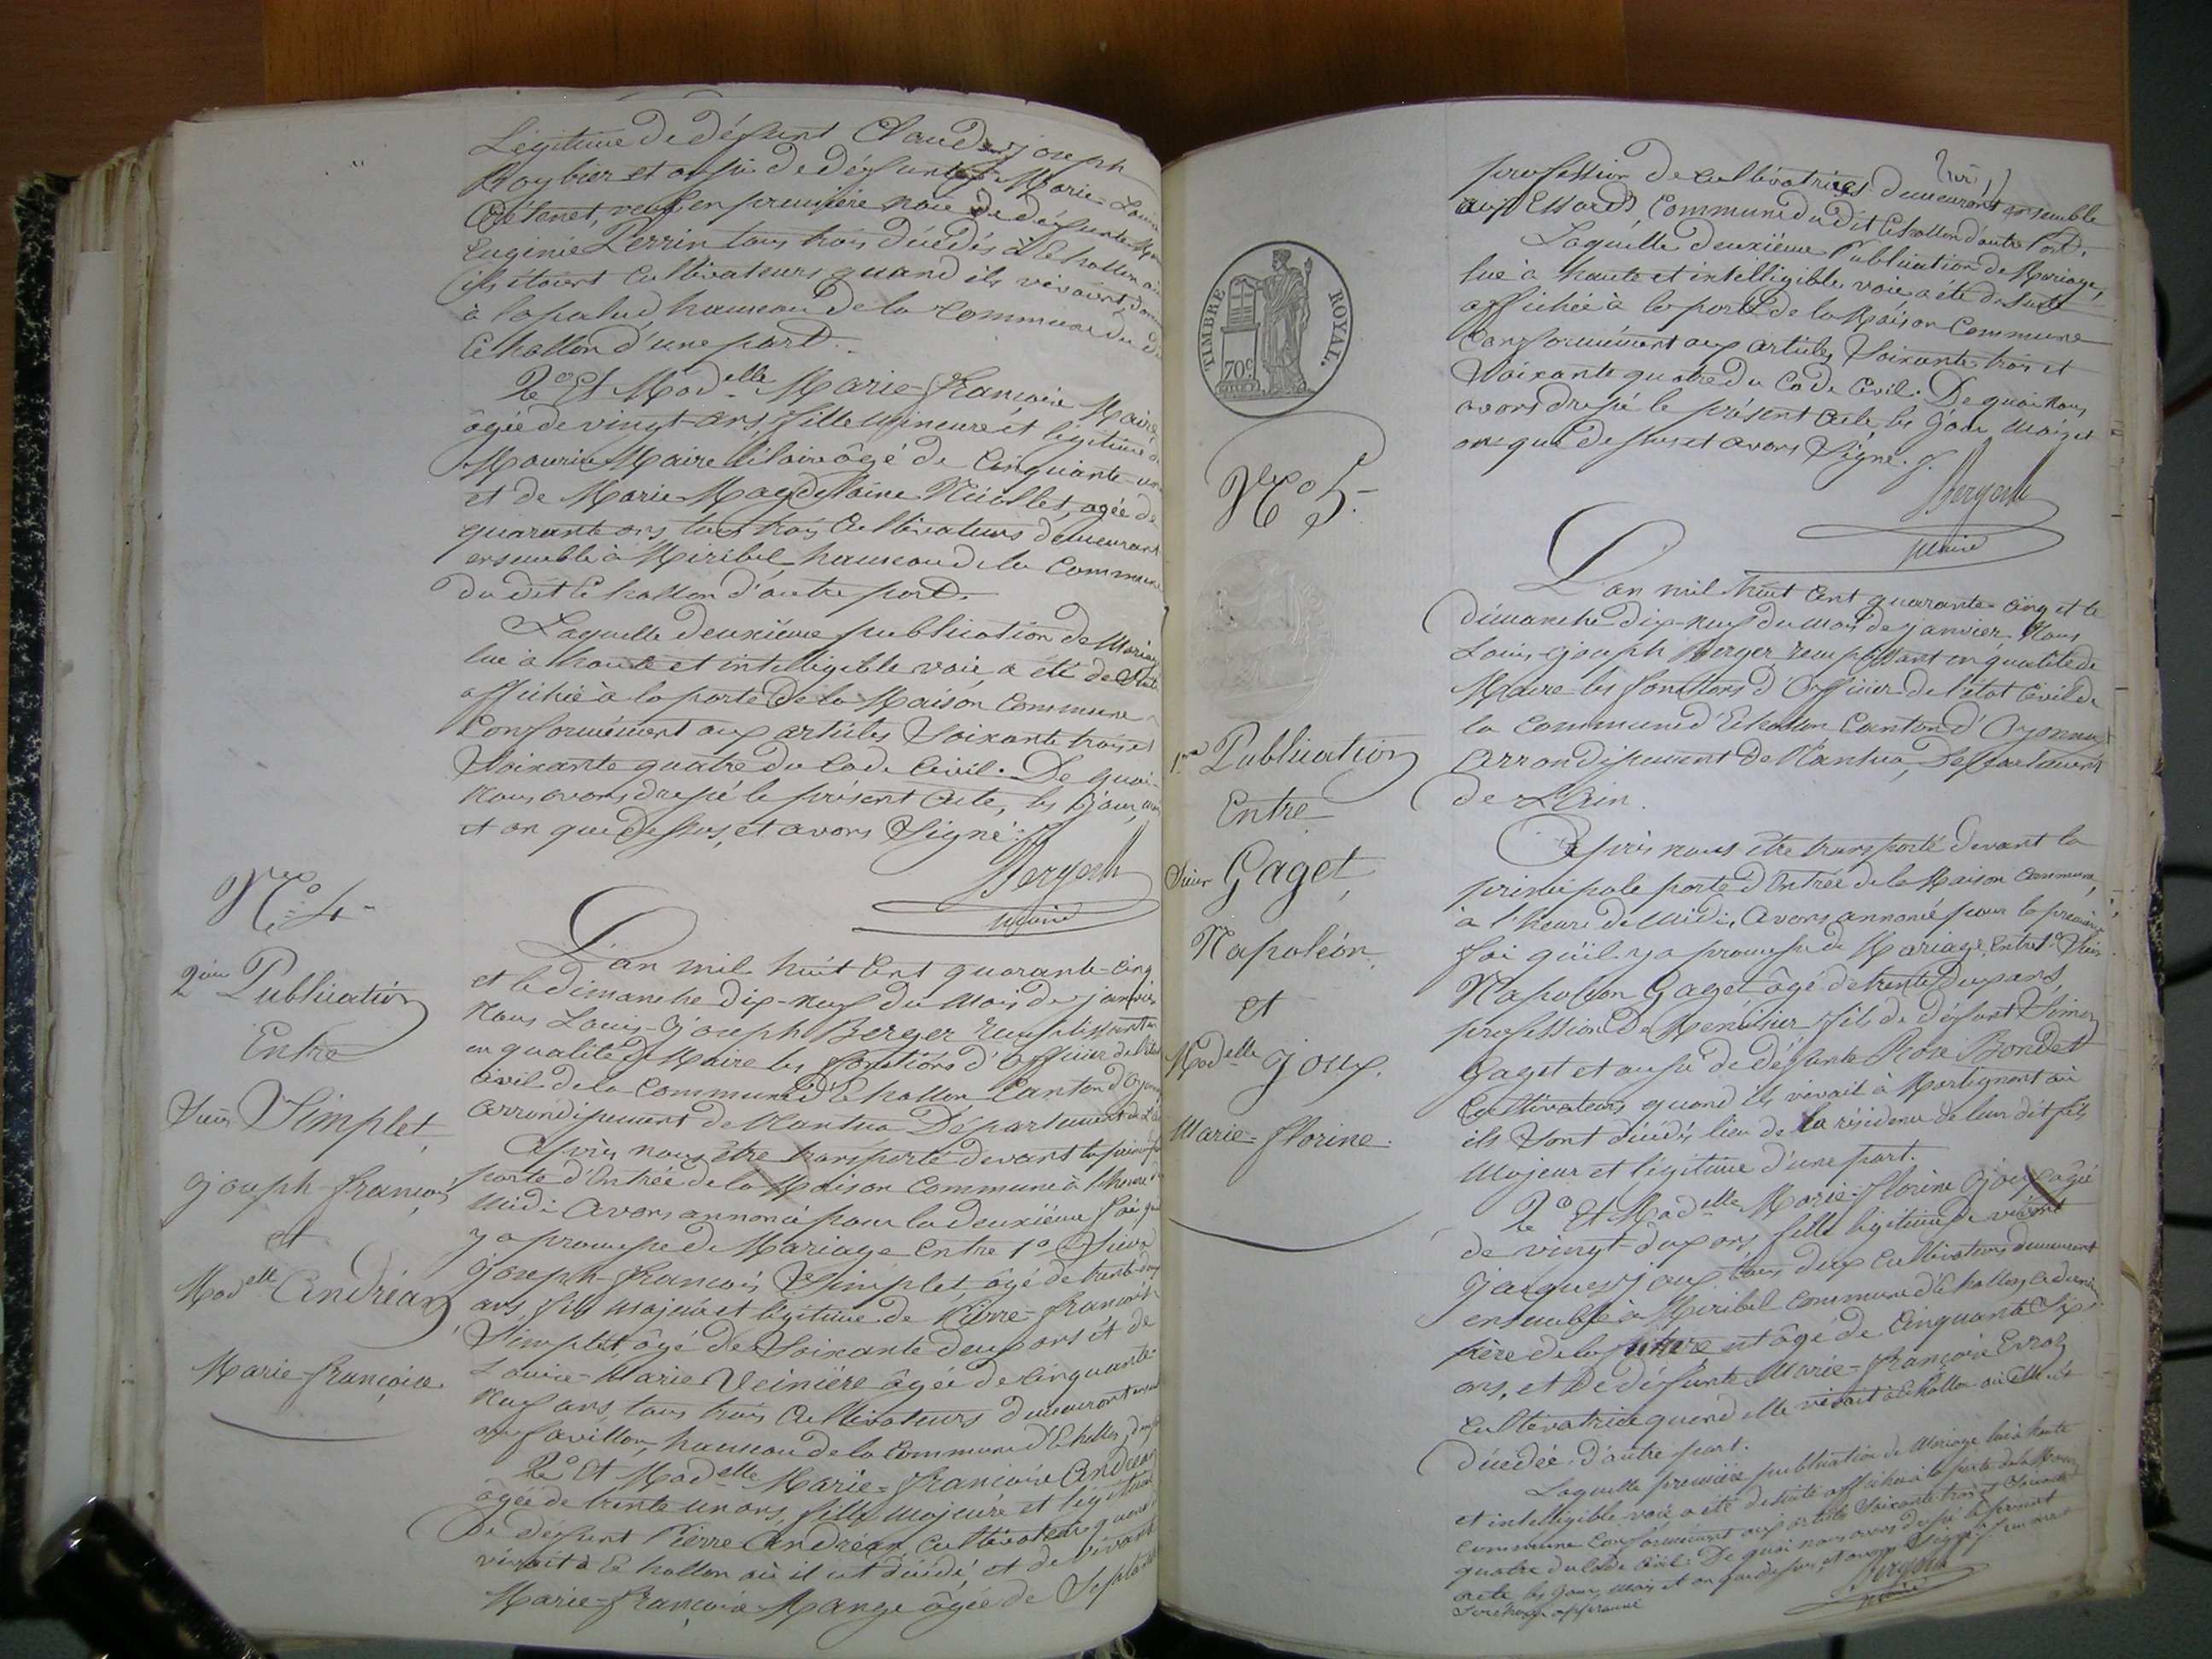 Légitime de défunt Claude joseph
Roybier et aussi de défunte Marie-Louise
veuf en première noce de défunte
Eugénie Perrin tous trois décédés à Echallon où
ils étaient Cultivateurs quand ils vivaient,
à lapalud hameau de la Commune du dit
Echallon d'une part.
2° Et Mad.elle Marie-françoise Maire,
âgée de vingt-ans, fille Mineure et légitime de
Maurice Maire hilaire âgé de Cinquante-
et de Marie Magdelaine Niollet, agée de
quarante ans, tous trois Cultivateurs demeurant
ensemble à Miribel hameau de la Commune
du dit Echallon d'autre part.
Laquelle deuxième publication de Mariage
lue à haute et intelligible voix a été de Suite
affichée à la porte de la Maison Commune
Conformément aux articles Soixante trois et
Soixante quatre du Code Civil. De quoi
Nous avons dressé le présent Acte, les jour, mois
et an que dessus, et avons Signé.
Berger
Maire
N° 4
2ème Publication
Entre
Sieur Simplet,
joseph-françois
et
Mad.elle Andréan,
Marie-françoise
L'an mil huit Cent quarante-Cinq
et le dimanche dix-neuf du Mois de janvier
Nous Louis-joseph Berger remplissant
en qualité de Maire les fonctions d'Officier de l'état
Civil de la Commune d'Echallon Canton d'Oyonnax
arrondissement de Nantua Département de l'Ain
Après nous être transporté devant la principale
porte d'Entrée de la Maison Commune à l'heure de
Midi Avons annoncé pour la deuxième fois qu'il
y a promesse de Mariage Entre 1° Sieur
joseph-françois Simplet, âgé de trente-deux
ans, fils Majeur et légitime de Pierre-françois
Simplet, âgé de Soixante deux ans et de
Louise-Marie Veinière âgée de Cinquante-
neuf ans, tous trois Cultivateurs demeurant
au favillon, hameau de la Commune d'Echallon, d'une part
2° Et Mad.elle Marie-françoise Andréan
âgée de trente-un ans, fille Majeure et légitime
de défunt Pierre Andréan, Cultivateur quand il
vivait à Echallon où il est décédé, et de vivante
Marie-françoise Mange âgée de Septante
profession de Cultivatrices demeurant ensemble
aux Essards Commune du dit Echallon d'autre Part.
Laquelle deuxième Publication de Mariage,
lue à haute et intelligible voix a été de Suite
affichée à la porte de la Maison Commune
Conformément aux articles Soixante trois et
Soixante quatre du Code Civil. De quoi Nous
avons dressé le présent Acte les jour Mois et
an que dessus et avons Signé.
Berger
Maire
TIMBRE ROYAL.
70c
N° 5.
1ère Publication
Entre
Sieur Gaget,
Napoléon,
et
Mad.elle joux,
Marie-florine.
L'an mil huit Cent quarante-Cinq et le
dimanche dix-neuf du Mois de janvier Nous
Louis joseph Berger remplissant en qualité de
Maire les fonctions d'Officier de l'état Civil de
la Commune d'Echallon Canton d'Oyonnax
Arrondissement de Nantua, Département
de L'Ain.
Après nous être transporté devant la
principale porte d'Entrée de la Maison Commune,
à l'heure de Midi, Avons annoncé pour la première
foi qu'il y a promesse de Mariage, Entre 1° Sieur
Napoléon Gaget âgé de trente-deux ans,
profession de Menuisier fils de défunt Simon
Gaget et aussi de défunte Rose Bondet
Cultivateurs quand ils vivait à Martignat où
ils Sont décédés lieu de la résidence de leur dit fils
Majeur et légitime d'une part.
2° Et Mad.elle Marie-florine joux agée
de vingt-deux ans, fille légitime de vivant
jacques joux tous deux Cultivateurs demeurant
ensemble à Miribel Commune d'Echallon, le dernier
père de la future est âgé de Cinquante Six
ans, et de défunte Marie-françoise
Cultivatrice quand elle vivait à Echallon où Elle est
décédée d'autre part.
Laquelle première publication de Mariage lue à haute
et intelligible voix a été de Suite affichée à la porte de la Maison
Commune Conformément aux articles Soixante trois et Soixante
quatre du Code Civil. De quoi nous avons dressé le présent
acte les jour, Mois et an que dessus, et avons Signé
Berger
Maire